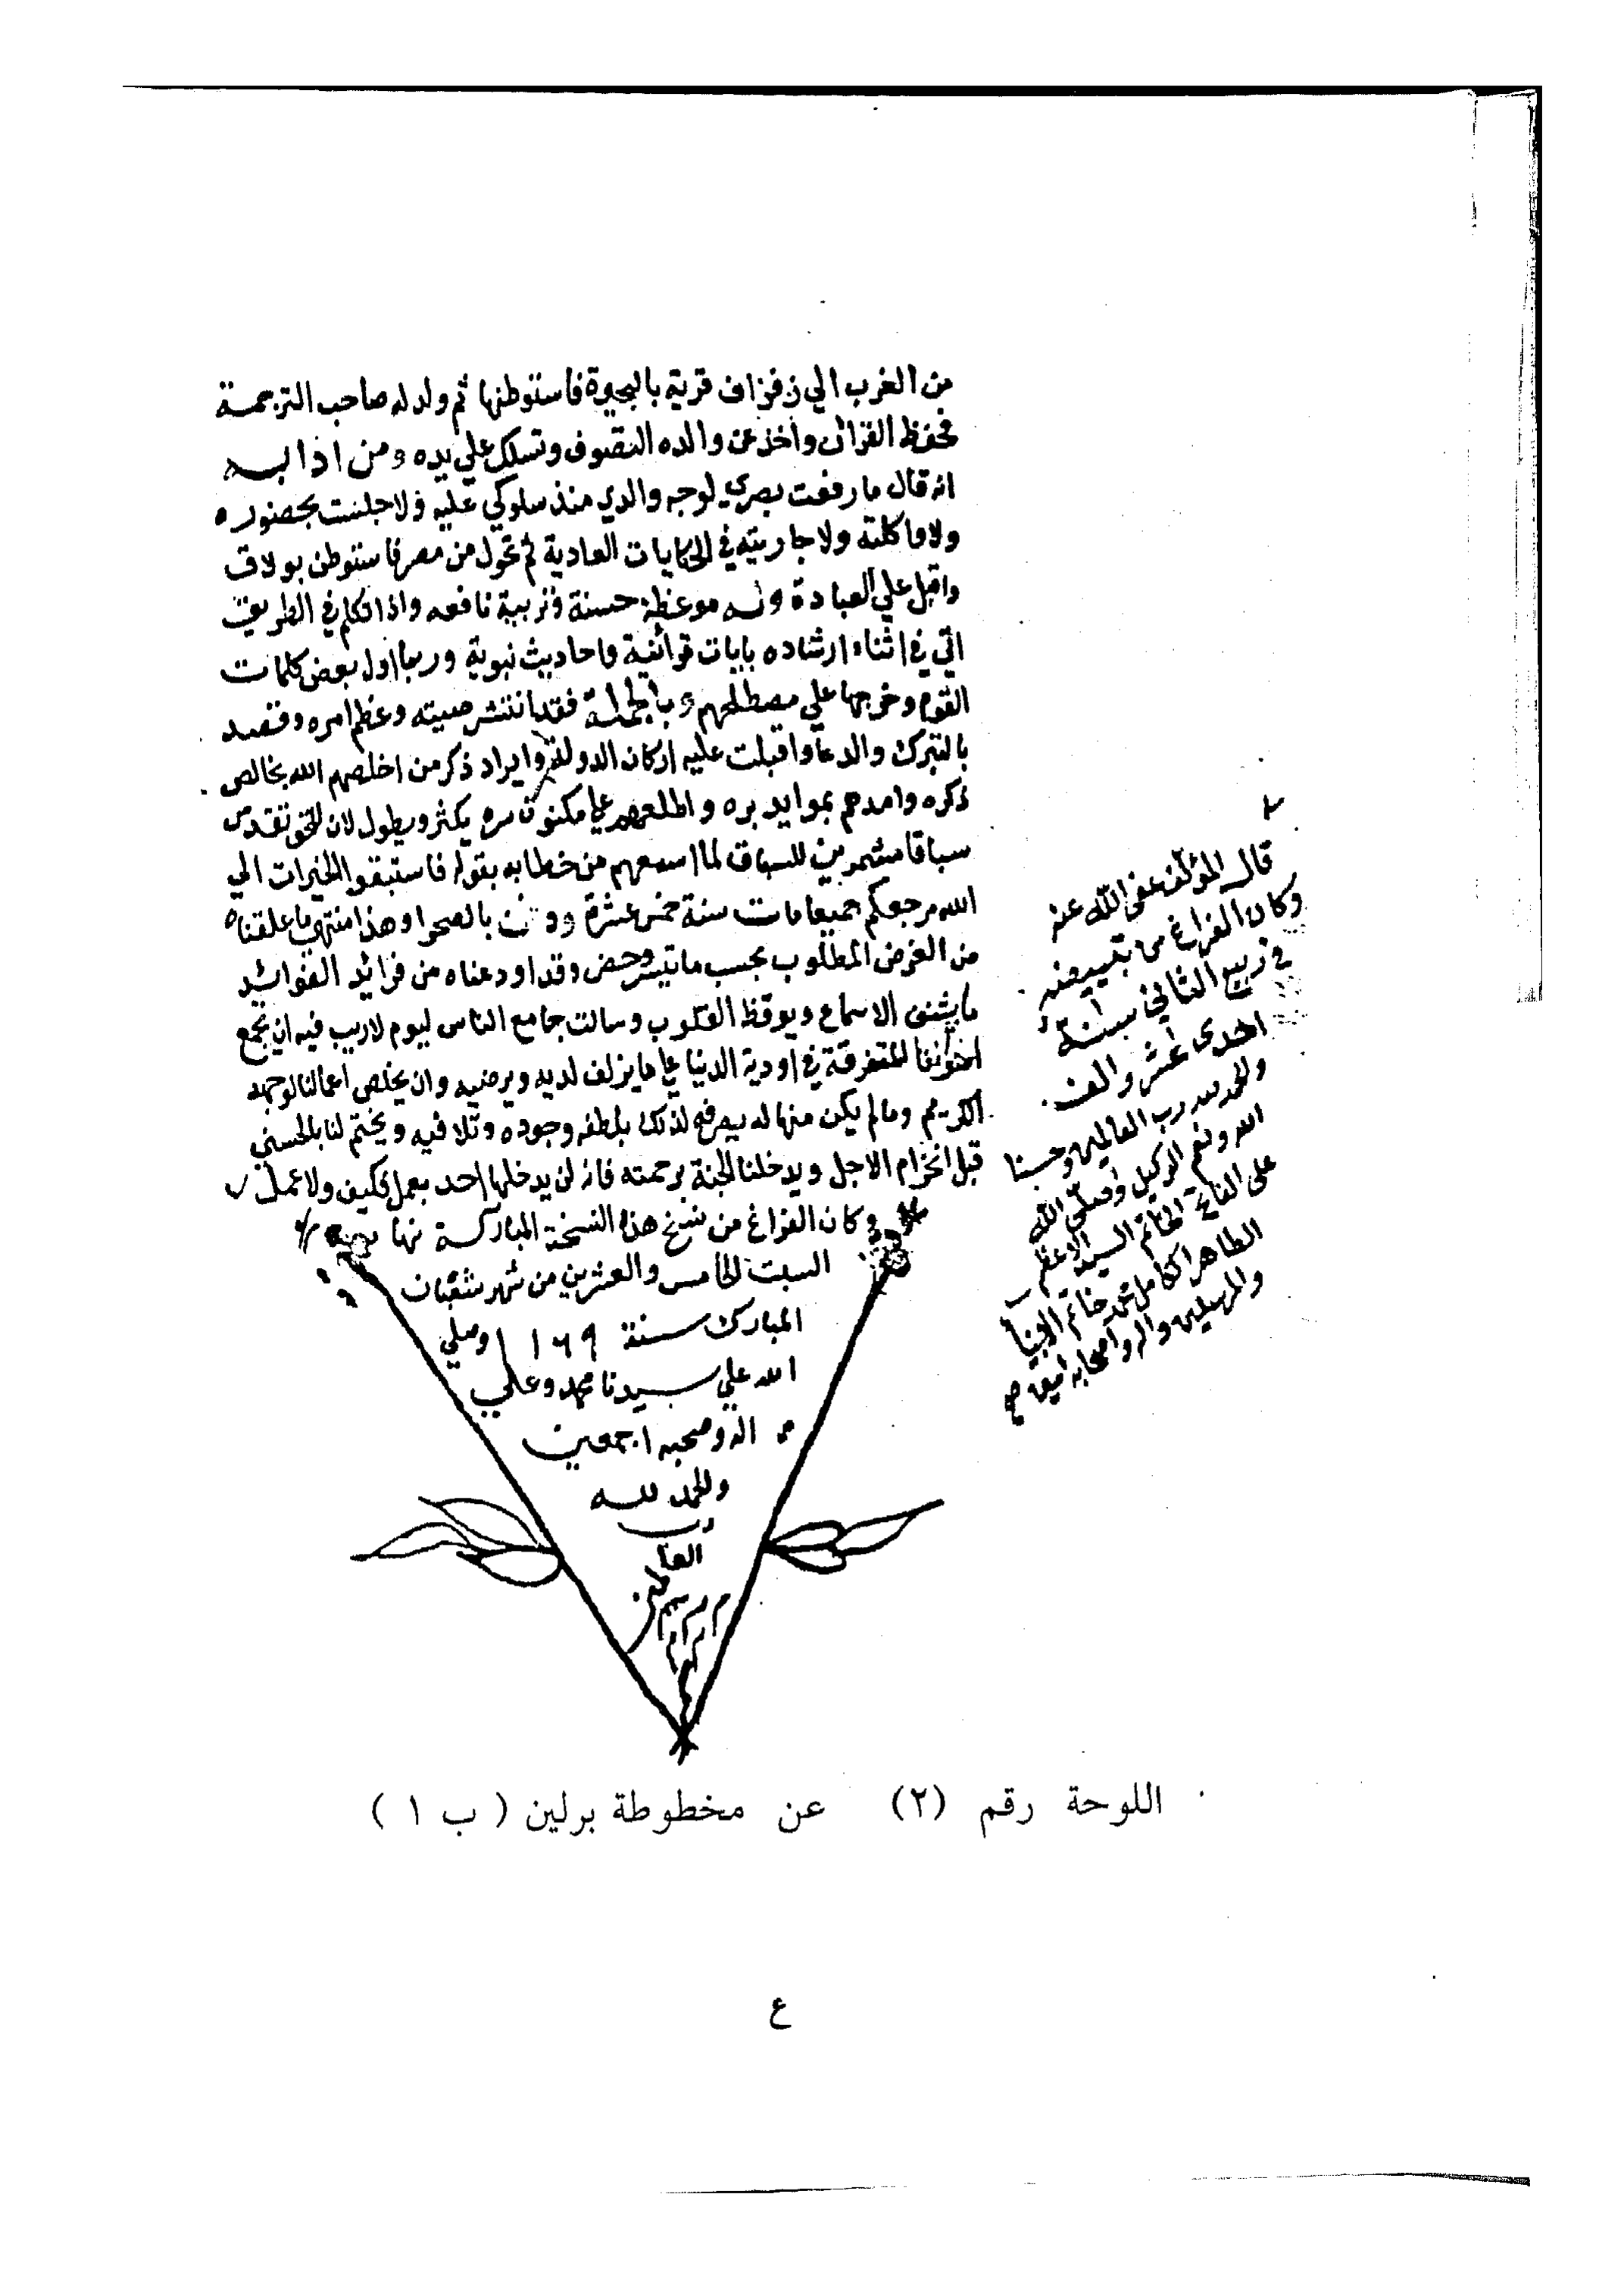 من الغرب الي زفزاف قرية بالبحيرة فاستوطنها ثم ولد له صاحب الترجمة
فحفظ القران واخذ عن والده التصوف وتسلك علي يده ومن ادابه
انه قال ما رفعت بصري لوجه والدي منذ سلوكي عليه ولا جلست بحضوره
ولا واكلته ولا جاريته في الحكايات العادية ثم تحول من مصر فاستوطن بولاق
واقبل علي العبادة وله موعظة حسنة وتربية نافعه واذا تكلم في الطريق
اتي في اثناء ارشاده بايات قرآنية واحاديث نبوية وربما اول بعض كلمات
القوم وخرجها علي مصطلحهم وبالجملة فقد انتشر صيته وعظم امره وقصد
بالتبرك والدعا واقبلت عليه اركان الدولة وايراد ذكر من اخلصهم الله بخالص
ذكره وامدهم بموايد بره واطلعهم علي مكنون سره يكثر ويطول لان للحق تقدس
سباقا مشمرين للسباق لما اسمعهم من خطابه بقوله فاستبقوا الخيرات الي
الله مرجعكم جميعا مات سنة خمس عشرة ودفن بالصحرا وهذا منتهي ما علقناه
من الغرض المطلوب بحسب ما تيسر وحض وقد اودعناه من فرائد الفوائد
ما يشنف الاسماع ويوقظ القلوب وسالت جامع الناس ليوم لا ريب فيه ان يجمع
اخواننا المتفرقة في اودية الدنيا علي ما يزلف لديه ويرضيه وان يخلص اعمالنا لوجهه
الكريم وما لم يكن منها له يصرفه لذلك بلطفه وجوده وتلافيه ويختم لنا بالحسني
قبل انخرام الاجل ويدخلنا الجنة برحمته فانه لن يدخلها احد بعمل فكيف ولا عمل
وكان الفراغ من نسخ هذه النسخة المباركة نهار
السبت الخامس والعشرين من شهر شعبان
المبارك سنة ١١٦٩ وصلي
الله علي سيدنا محمد وعلي
اله وصحبه اجمعين
والحمد لله
رب
العا
لمين
قال المؤلف عفى الله عنه
وكان الفراغ من تبييضه
في ربيع الثاني سنة
احدى عشر والف
والحمد لله رب العالمين وحسبنا
الله ونعم الوكيل وصلى الله
على الفاتح الخاتم السيد الاعظم
الطاهر الكامل محمد خاتم الانبياء
والمرسلين واله واصحابه
اللوحة رقم (٢) عن مخطوطة برلين (ب ١)
ع